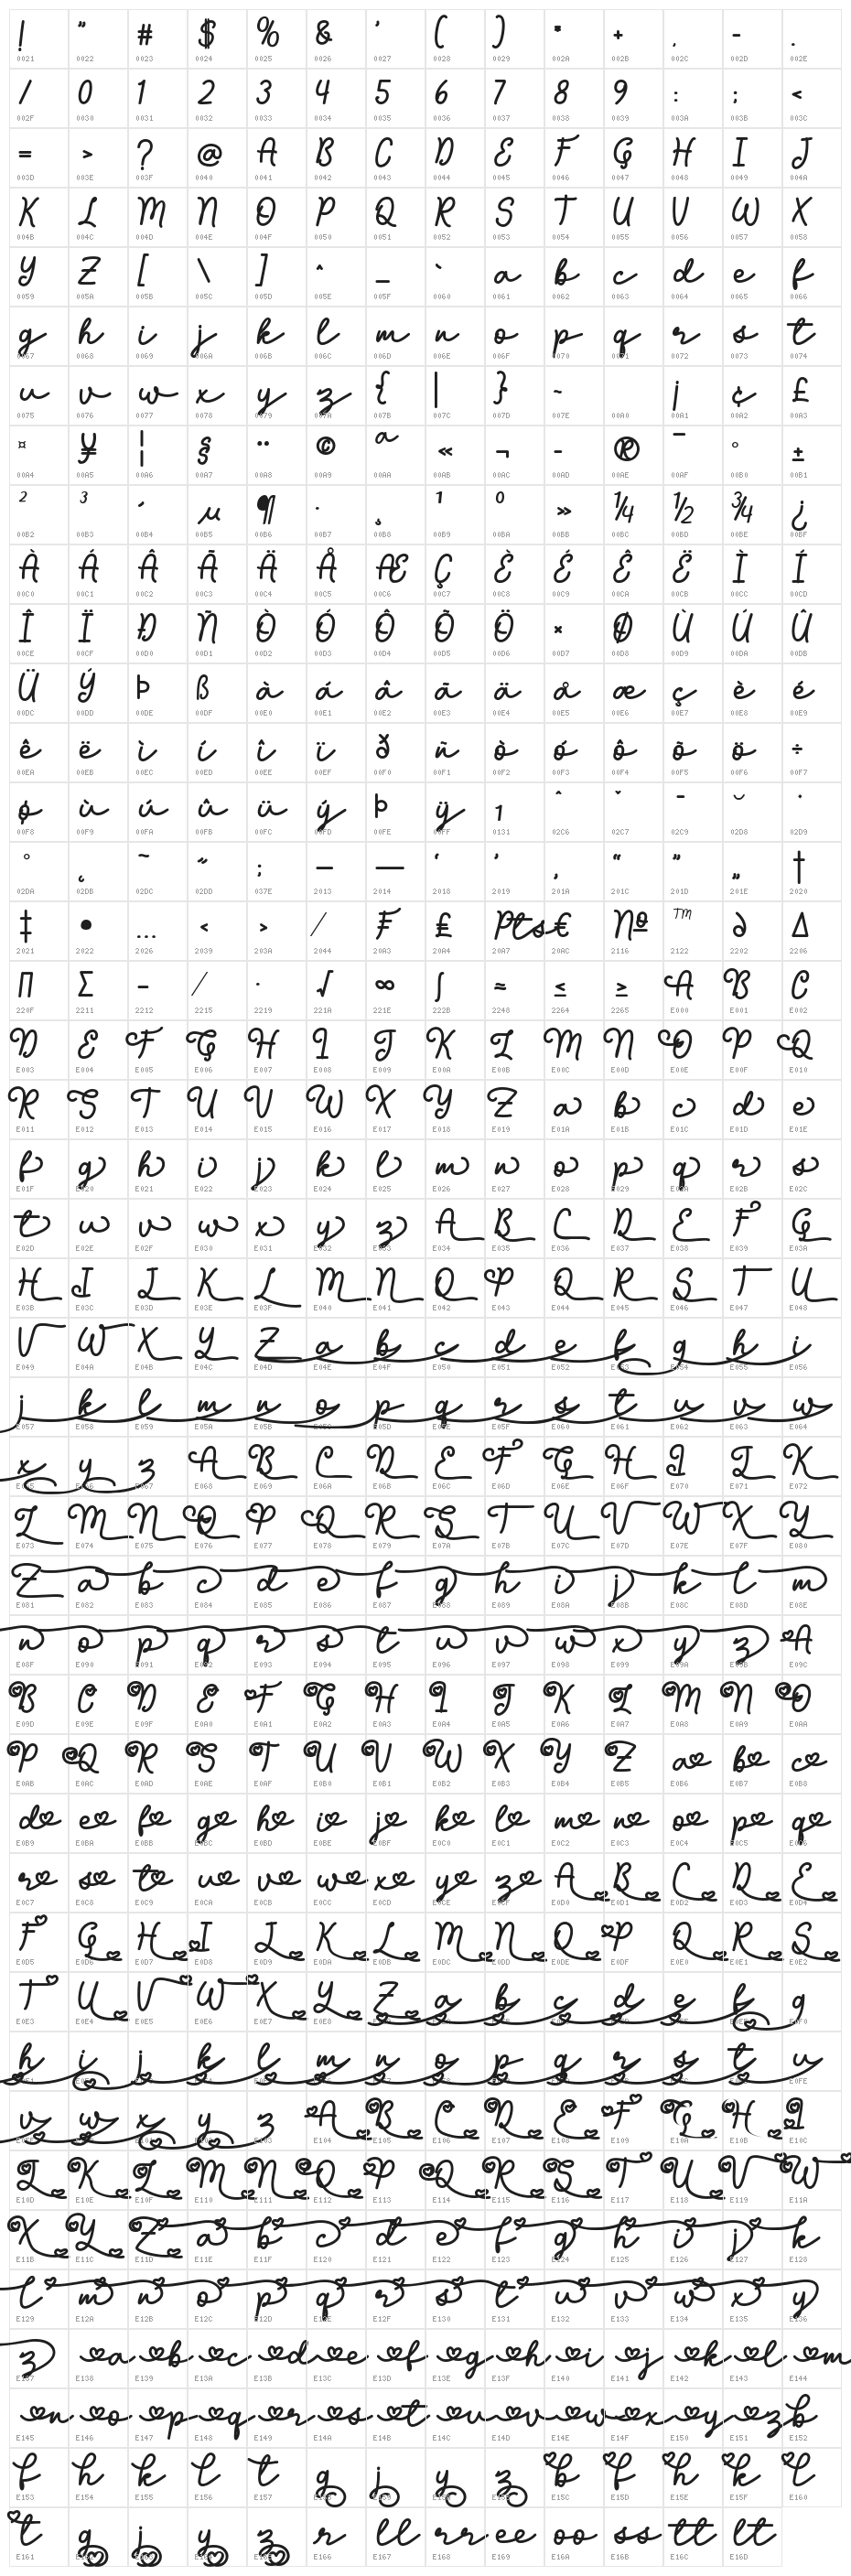 ! " # $ % & ' ( ) * + , - .
0021 0022 0023 0024 0025 0026 0027 0028 0029 002A 002B 002C 002D 002E
/ 0 1 2 3 4 5 6 7 8 9 : ; <
002F 0030 0031 0032 0033 0034 0035 0036 0037 0038 0039 003A 003B 003C
= > ? @ A B C D E F G H I J
003D 003E 003F 0040 0041 0042 0043 0044 0045 0046 0047 0048 0049 004A
K L M N O P Q R S T U V W X
004B 004C 004D 004E 004F 0050 0051 0052 0053 0054 0055 0056 0057 0058
Y Z [ \ ] ^ _ ` a b c d e f
0059 005A 005B 005C 005D 005E 005F 0060 0061 0062 0063 0064 0065 0066
g h i j k l m n o p q r s t
0067 0068 0069 006A 006B 006C 006D 006E 006F 0070 0071 0072 0073 0074
u v w x y z { | } ~ ¡ ¢ £
0075 0076 0077 0078 0079 007A 007B 007C 007D 007E 00A0 00A1 00A2 00A3
¤ ¥ ¦ § ¨ © ª « ¬ - ® ¯ ° ±
00A4 00A5 00A6 00A7 00A8 00A9 00AA 00AB 00AC 00AD 00AE 00AF 00B0 00B1
² ³ ´ µ ¶ · ¸ ¹ º » ¼ ½ ¾ ¿
00B2 00B3 00B4 00B5 00B6 00B7 00B8 00B9 00BA 00BB 00BC 00BD 00BE 00BF
À Á Â Ã Ä Å Æ Ç È É Ê Ë Ì Í
00C0 00C1 00C2 00C3 00C4 00C5 00C6 00C7 00C8 00C9 00CA 00CB 00CC 00CD
Î Ï Ð Ñ Ò Ó Ô Õ Ö × Ø Ù Ú Û
00CE 00CF 00D0 00D1 00D2 00D3 00D4 00D5 00D6 00D7 00D8 00D9 00DA 00DB
Ü Ý Þ ß à á â ã ä å æ ç è é
00DC 00DD 00DE 00DF 00E0 00E1 00E2 00E3 00E4 00E5 00E6 00E7 00E8 00E9
ê ë ì í î ï ð ñ ò ó ô õ ö ÷
00EA 00EB 00EC 00ED 00EE 00EF 00F0 00F1 00F2 00F3 00F4 00F5 00F6 00F7
ø ù ú û ü ý þ ÿ ı ˆ ˇ ˉ ˘ ˙
00F8 00F9 00FA 00FB 00FC 00FD 00FE 00FF 0131 02C6 02C7 02C9 02D8 02D9
˚ ˛ ˜ ˝ ; – — ‘ ’ ‚ “ ” „ †
02DA 02DB 02DC 02DD 037E 2013 2014 2018 2019 201A 201C 201D 201E 2020
‡ • … ‹ › ⁄ ₣ ₤ ₧ € № ™ ∂ ∆
2021 2022 2026 2039 203A 2044 20A3 20A4 20A7 20AC 2116 2122 2202 2206
∏ ∑ − ∕ ∙ √ ∞ ∫ ≈ ≤ ≥ A B C
220F 2211 2212 2215 2219 221A 221E 222B 2248 2264 2265 E000 E001 E002
D E F G H I J K L M N O P Q
E003 E004 E005 E006 E007 E008 E009 E00A E00B E00C E00D E00E E00F E010
R S T U V W X Y Z a b c d e
E011 E012 E013 E014 E015 E016 E017 E018 E019 E01A E01B E01C E01D E01E
f g h i j k l m n o p q r s
E01F E020 E021 E022 E023 E024 E025 E026 E027 E028 E029 E02A E02B E02C
t u v w x y z A B C D E F G
E02D E02E E02F E030 E031 E032 E033 E034 E035 E036 E037 E038 E039 E03A
H I J K L M N O P Q R S T U
E03B E03C E03D E03E E03F E040 E041 E042 E043 E044 E045 E046 E047 E048
V W X Y Z a b c d e f g h i
E049 E04A E04B E04C E04D E04E E04F E050 E051 E052 E053 E054 E055 E056
j k l m n o p q r s t u v w
E057 E058 E059 E05A E05B E05C E05D E05E E05F E060 E061 E062 E063 E064
x y z A B C D E F G H I J K
E065 E066 E067 E068 E069 E06A E06B E06C E06D E06E E06F E070 E071 E072
L M N O P Q R S T U V W X Y
E073 E074 E075 E076 E077 E078 E079 E07A E07B E07C E07D E07E E07F E080
Z a b c d e f g h i j k l m
E081 E082 E083 E084 E085 E086 E087 E088 E089 E08A E08B E08C E08D E08E
n o p q r s t u v w x y z A
E08F E090 E091 E092 E093 E094 E095 E096 E097 E098 E099 E09A E09B E09C
B C D E F G H I J K L M N O
E09D E09E E09F E0A0 E0A1 E0A2 E0A3 E0A4 E0A5 E0A6 E0A7 E0A8 E0A9 E0AA
P Q R S T U V W X Y Z a b c
E0AB E0AC E0AD E0AE E0AF E0B0 E0B1 E0B2 E0B3 E0B4 E0B5 E0B6 E0B7 E0B8
d e f g h i j k l m n o p q
E0B9 E0BA E0BB E0BC E0BD E0BE E0BF E0C0 E0C1 E0C2 E0C3 E0C4 E0C5 E0C6
r s t u v w x y z A B C D E
E0C7 E0C8 E0C9 E0CA E0CB E0CC E0CD E0CE E0CF E0D0 E0D1 E0D2 E0D3 E0D4
F G H I J K L M N O P Q R S
E0D5 E0D6 E0D7 E0D8 E0D9 E0DA E0DB E0DC E0DD E0DE E0DF E0E0 E0E1 E0E2
T U V W X Y Z a b c d e f g
E0E3 E0E4 E0E5 E0E6 E0E7 E0E8 E0F0
h i j k l m n o p q r s t u
E0FE
v w x y z A B C D E F G H I
E103 E104 E105 E106 E107 E108 E109 E10A E10B E10C
J K L M N O P Q R S T U V W
E10D E10E E10F E110 E111 E112 E113 E114 E115 E116 E117 E118 E119 E11A
X Y Z a b c d e f g h i j k
E11B E11C E11D E11E E11F E120 E121 E122 E123 E124 E125 E126 E127 E128
l m n o p q r s t u v w x y
E129 E12A E12B E12C E12D E12E E12F E130 E131 E132 E133 E134 E135 E136
z a b c d e f g h i j k l m
E137 E138 E139 E13A E13B E13C E13D E13E E13F E140 E141 E142 E143 E144
n o p q r s t u v w x y z b
E145 E146 E147 E148 E149 E14A E14B E14C E14D E14E E14F E150 E151 E152
f h k l t g j y z b f h k l
E153 E154 E155 E156 E157 E15C E15D E15E E15F E160
t g j y z r ll rr ee oo ss tt lt
E161 E166 E167 E168 E169 E16A E16B E16C E16D